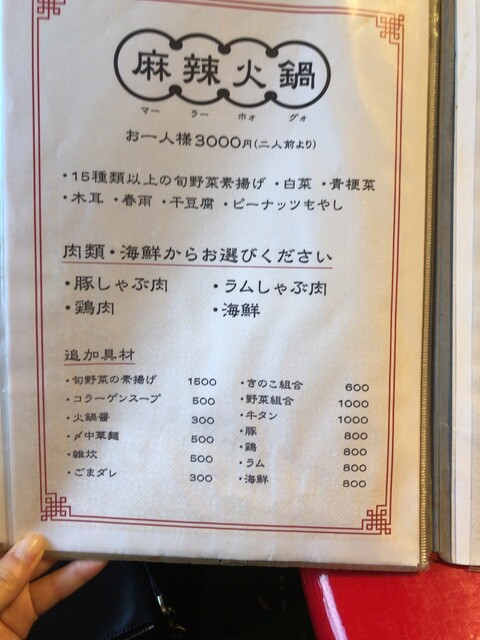 麻辣火鍋
マー ラー ホォ グォ
お一人様3000円(二人前より)
・15種類以上の旬野菜素揚げ ・白菜 ・青梗菜
・木耳 ・春雨 ・干豆腐 ・ピーナッツもやし
肉類・海鮮からお選びください
・豚しゃぶ肉 ・ラムしゃぶ肉
・鶏肉 ・海鮮
追加具材
・旬野菜の素揚げ 1500
・コラーゲンスープ 500
・火鍋醤 300
・〆中華麺 500
・雑炊 500
・ごまダレ 300
・きのこ組合 600
・野菜組合 1000
・牛タン 1000
・豚 800
・鶏 800
・ラム 800
・海鮮 800